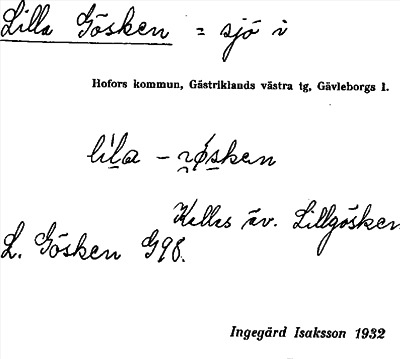 Lilla Gösken = sjö i
Hofors kommun, Gästriklands västra tg, Gävleborgs l.
lila – 
Kallas äv. Lillgösken
L. Gösken G98.
Ingegärd Isaksson 1932